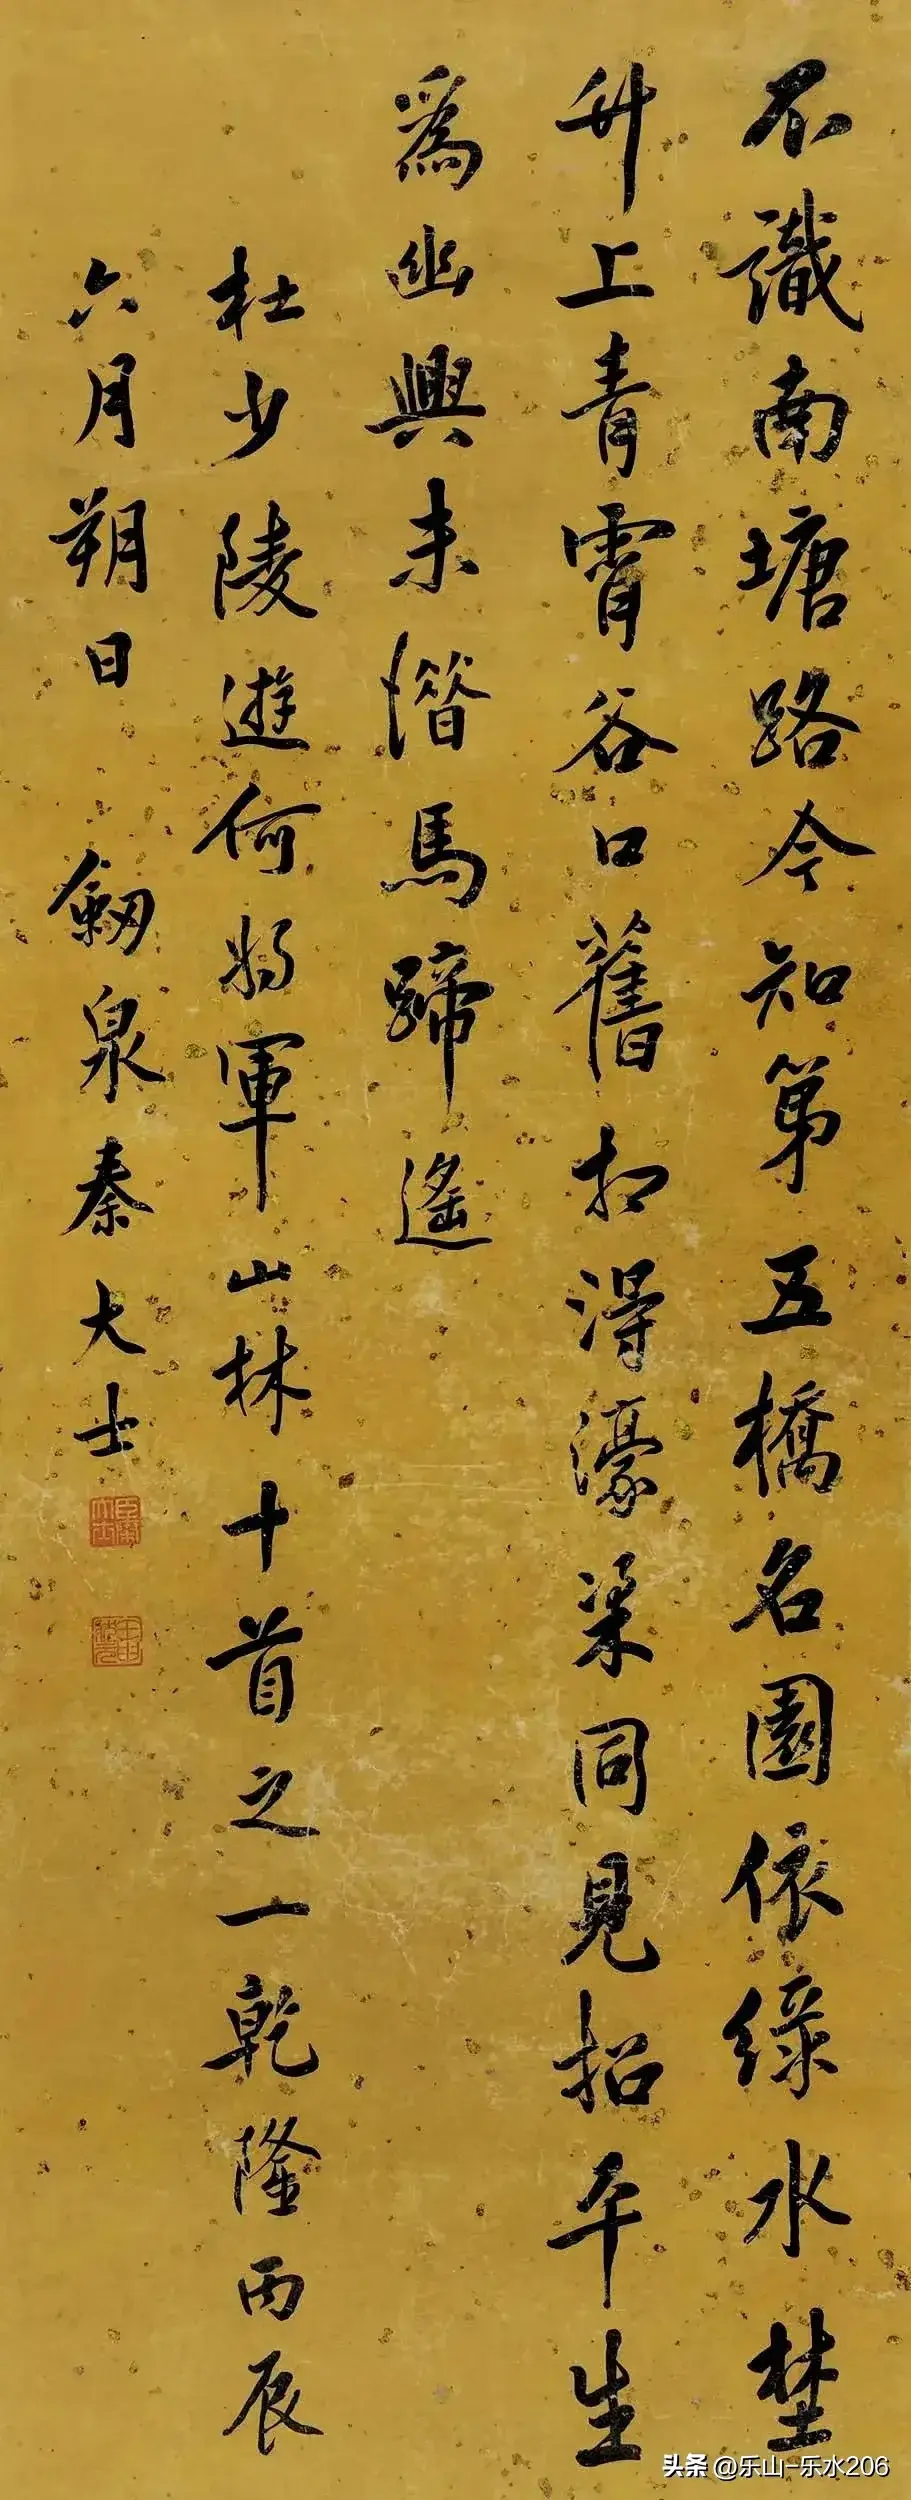 不識南塘路今知第五橋名園依綠水埜
竹上青霄谷口舊相得濠梁同見招平生
爲幽興未惜馬蹄遙
杜少陵遊何將軍山林十首之一乾隆丙辰
六月朔日 劒泉秦大士
头条 @乐山-乐水206